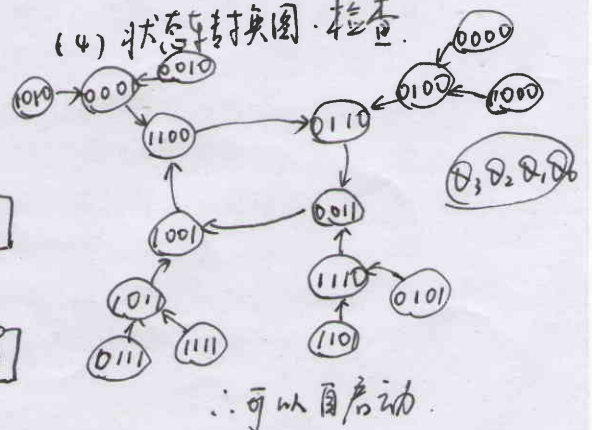 (4) 状态转换图. 检查.
0000
1010 0001 0010 0100 1000
1100 0110
Q3 Q2 Q1 Q0
1001 0011
1011 1110 0101
0111 1111 1101
∴可以自启动.